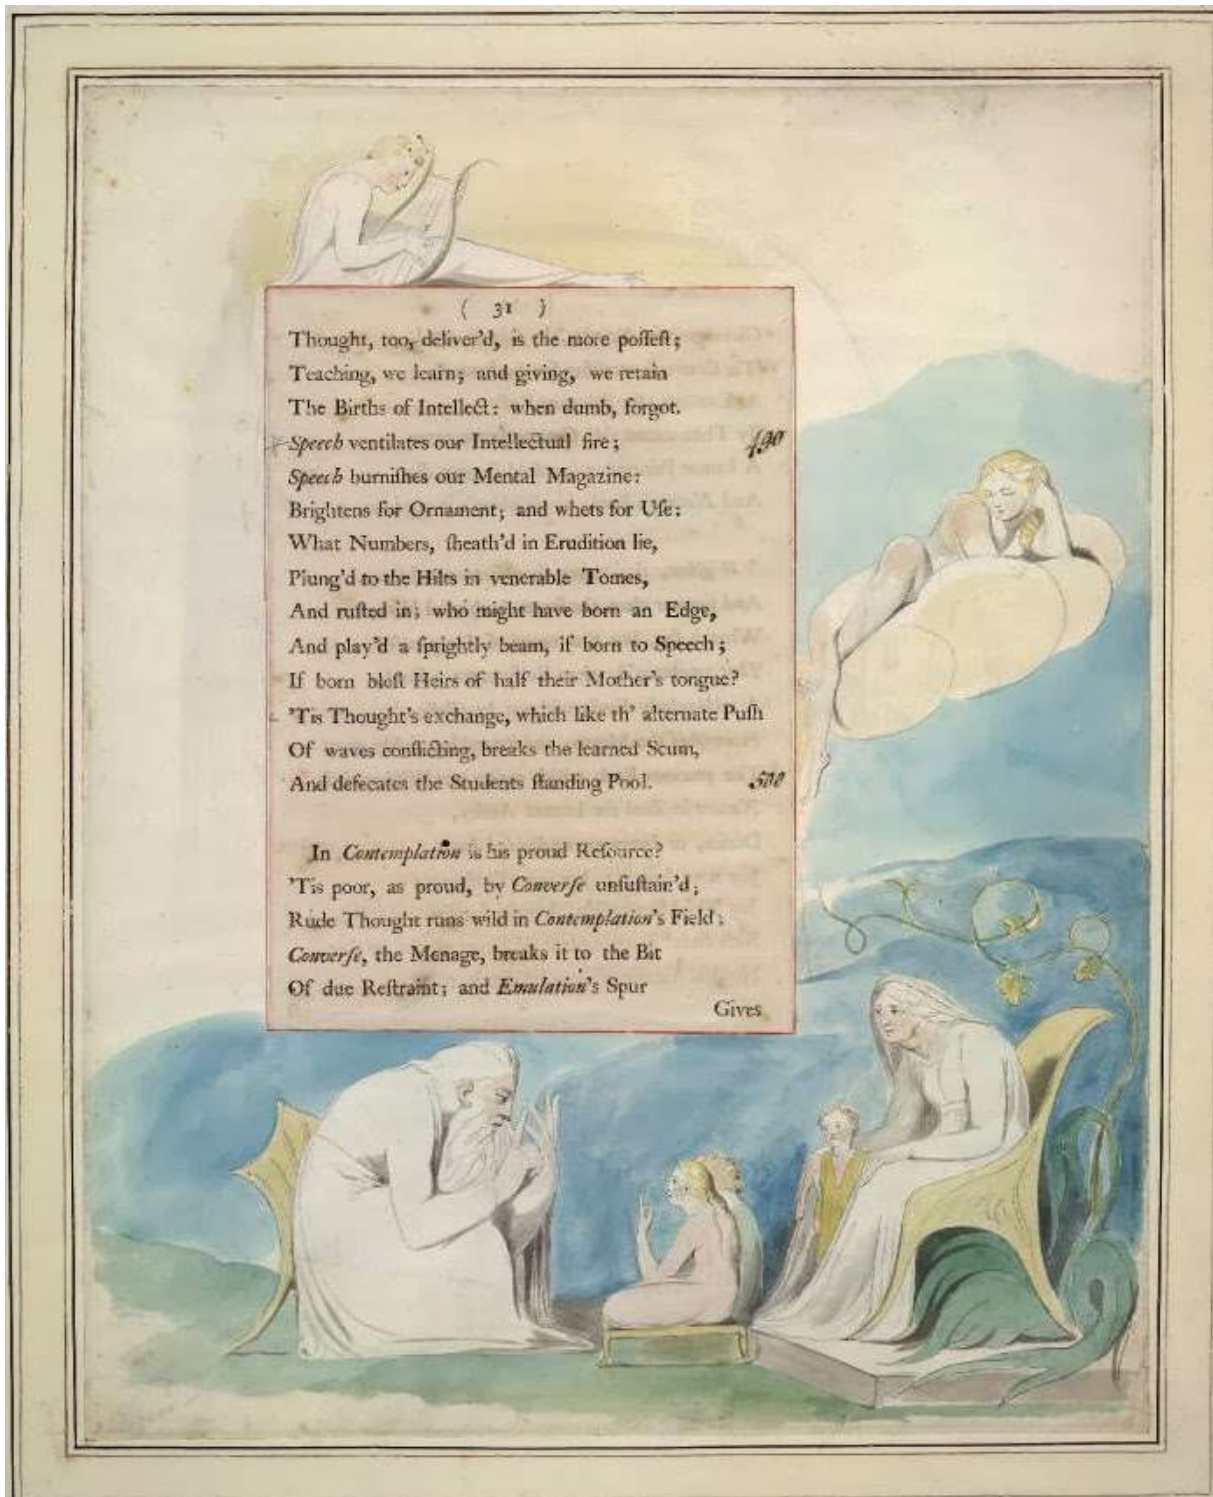 ( 31 )
Thought, too, deliver'd, is the more poſſeſt;
Teaching, we learn; and giving, we retain
The Births of Intellect: when dumb, forgot.
Speech ventilates our Intellectual fire; 490
Speech burniſhes our Mental Magazine:
Brightens for Ornament; and whets for Uſe:
What Numbers, ſheath'd in Erudition lie,
Plung'd to the Hilts in venerable Tomes,
And ruſted in; who might have born an Edge,
And play'd a ſprightly beam, if born to Speech;
If born bleſt Heirs of half their Mother's tongue?
'Tis Thought's exchange, which like th' alternate Puſh
Of waves conflicting, breaks the learned Scum,
And defecates the Students ſtanding Pool. 500
In Contemplation is his proud Reſource?
'Tis poor, as proud, by Converſe unſuſtain'd;
Rude Thought runs wild in Contemplation's Field:
Converſe, the Menage, breaks it to the Bit
Of due Reſtraint; and Emulation's Spur
Gives